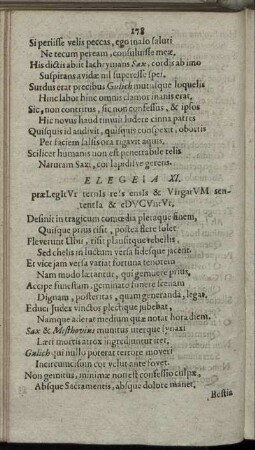 178
Si periisse velis peccas, ego malo saluti
Ne tecum pereant, consuluisse meæ.
His dictis abiit lachrymans Sax, cordis ab imo
Suspirans avidæ nil superesse spei.
Surdus erat precibus Gulich mutusque loquelis
Hinc labor hinc omnis clamor inanis erat,
Sic, non contritus, sic non confessus, & ipsos
Hic novus haud timuit ludere cinna patres
Quisquis id audivit, quisquis conspexit, obortis
Per faciem salsis ora rigavit aquis,
Scilicet humanis non est penetrabile telis
Naturam Saxi, cor lapidisve gerens.
ELEGEIA XI.
præLegItVr ternIs reIs ensIs & VIrgarVM sen-
tentIa & eDVCVntVr,
Definit in tragicum comœdia pleraque finem,
Quisque prius risit, postea flere solet
Fleverunt Ubii, risit plausitque rebellis,
Sed chelis in luctum versa fidesque jacent.
Et vice jam versa variat fortuna tenorem
Nam modo lætantur, qui gemuere prius,
Accipe funestam, geminato funere scenam
Dignam, posteritas, quam generanda, legas.
Educi Judex vinctos plectique jubebat,
Namque aderat medium quæ notat hora diem.
Sax & Mesthovius munitus uterque synaxi
Læti mortis atrox ingrediuntur iter.
Gulich qui nullo poterat terrore moveri
Incircumcisum cor velut ante fovet.
Non gemitus, minimæ non est confessio culpæ,
Absque Sacramentis, absque dolore manet,
Bestia